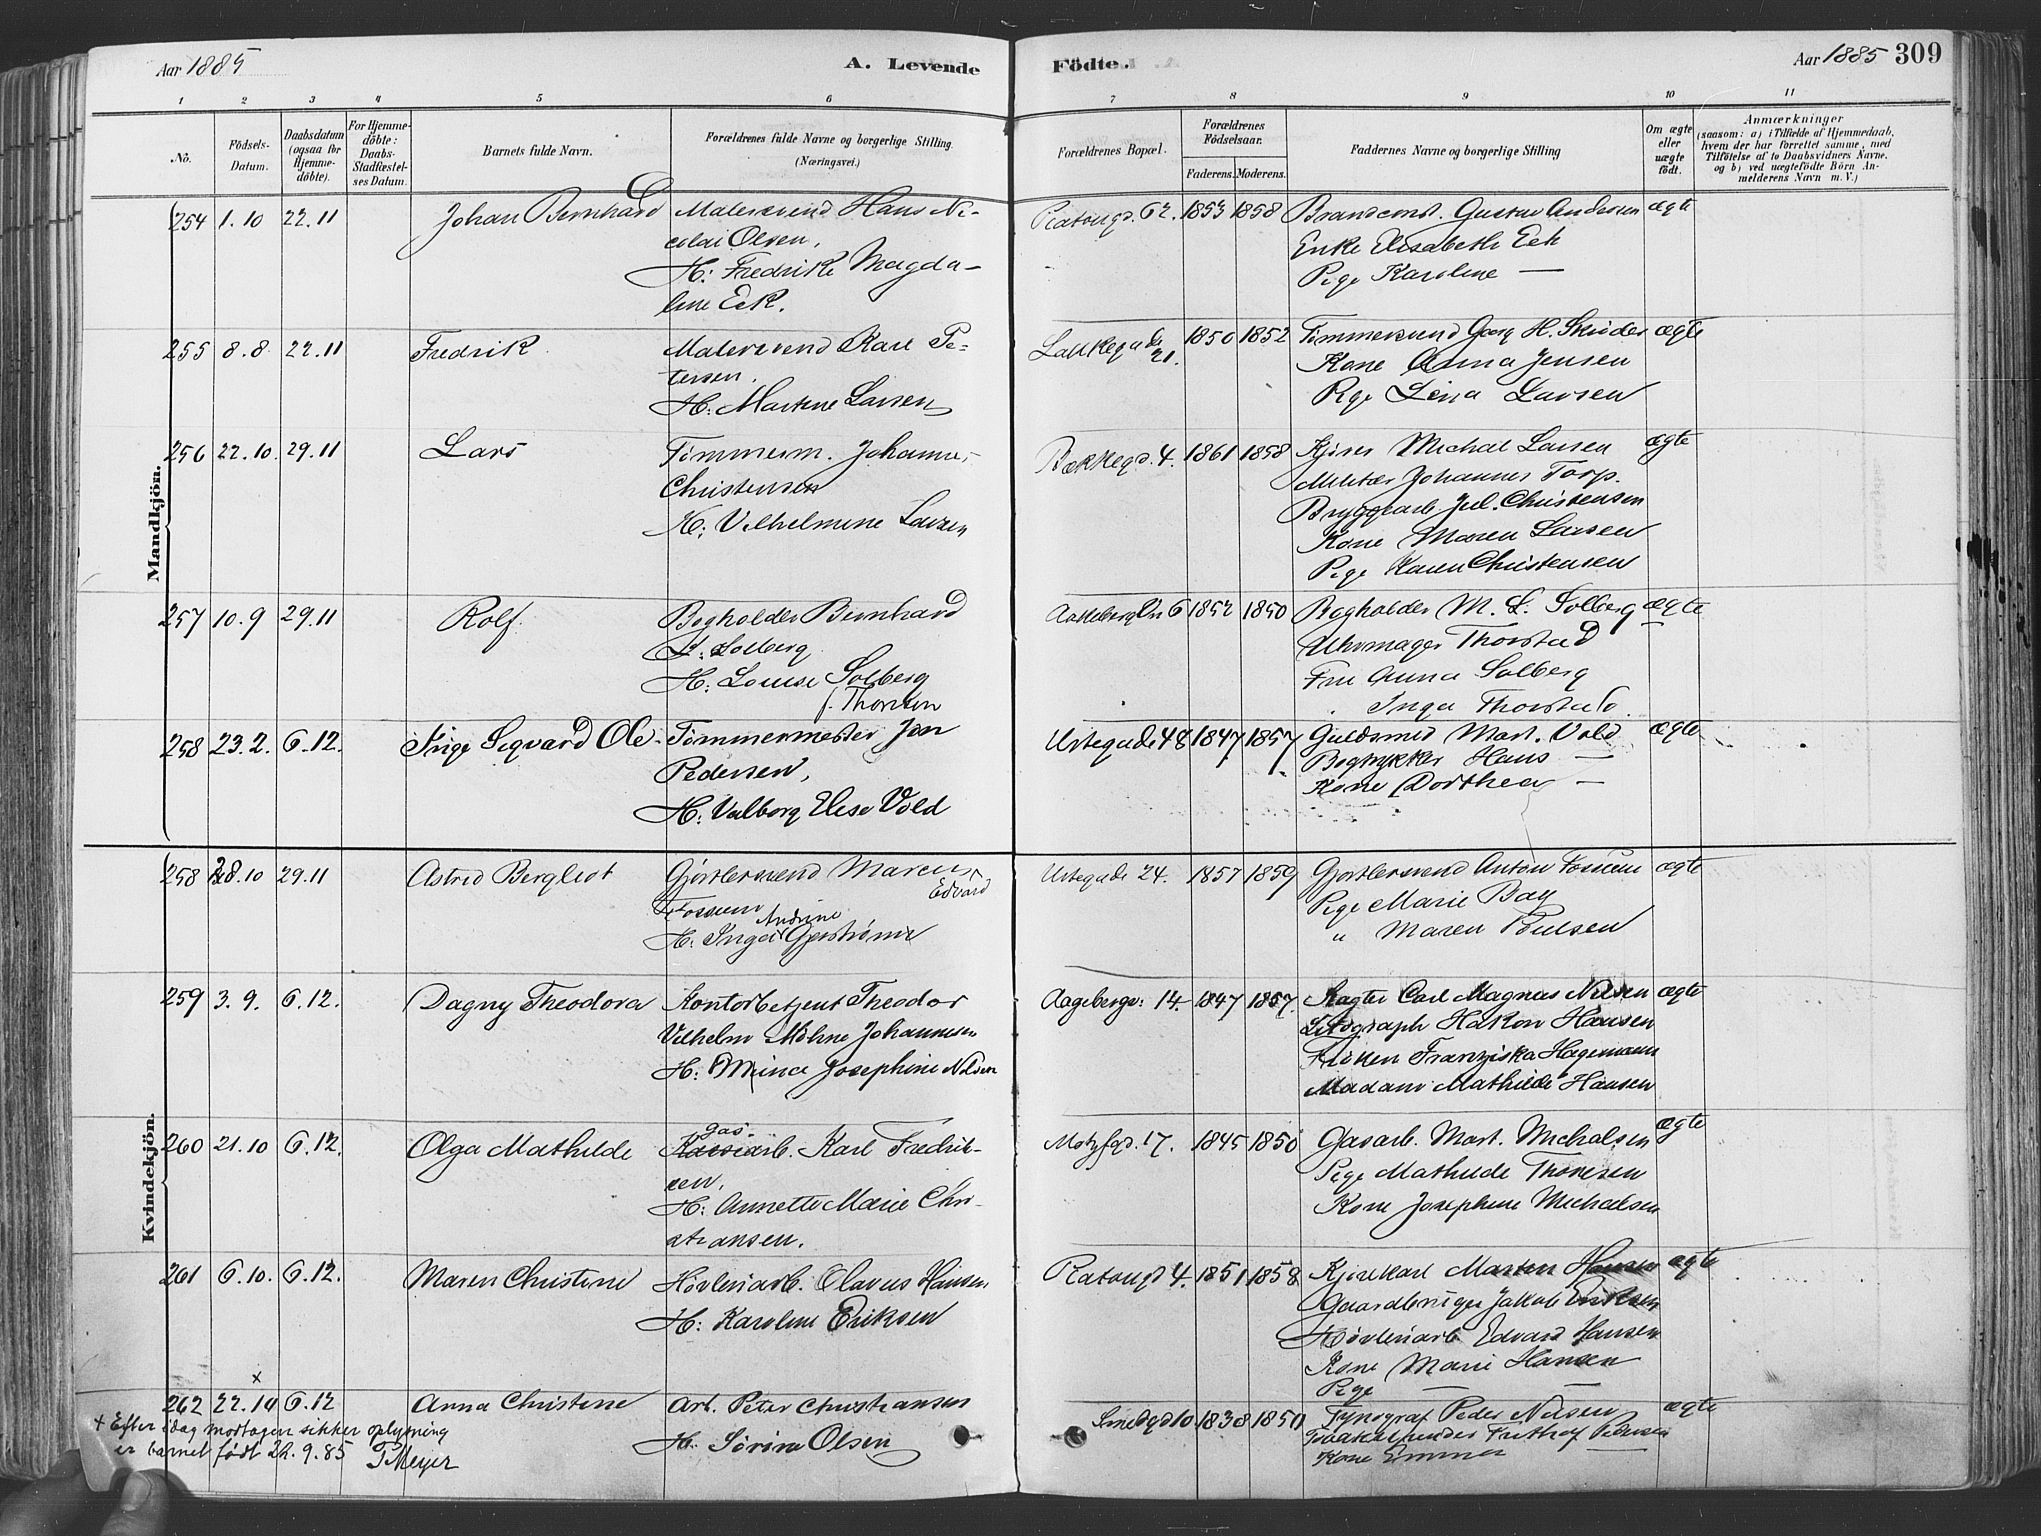 Aar 1885
A. Levende
Födte.
Aar 1885 309
1 2 3 4 5 6 7 8 9 10 11
No.
Födsels-
Datum.
Daabsdatum
(ogsaa for
Hjemme-
döbte).
For Hjemme-
döbte:
Daabs-
Stadfæstel-
ses Datum.
Barnets fulde Navn.
Forældrenes fulde Navne og borgerlige Stilling
(Næringsvei.)
Forældrenes Bopæl.
Forældrenes
Födselsaar.
Faderens. Moderens.
Faddernes Navne og borgerlige Stilling
Om ægte
eller
uægte
födt.
Anmærkninger
(saasom: a) i Tilfælde af Hjemmedaab,
hvem der har forrettet samme, med
Tilföielse af to Daabsvidners Navne,
og b) ved uægtefödte Börn An-
melderens Navn m. V.)
Mandkjön.
254 1.10 22.11 Johan Bernhard Malersvend Hans Ni-
colai Olsen,
H: Fredrike Magda-
lene Eek.
62. 1853 1858 Brandconst. Gustav Andersen ægte
Enke Elisabeth Eek
Pige Karoline —
255 8.8. 22.11 Fredrik Malersvend Karl Pe-
tersen.
H: Martine Larsen
Lakkegade
21.
1850 1852 Tømmersvend Georg H. Skrøder ægte
Kone Anna Jensen
Pige Lina Larsen
256 22.10. 29.11 Lars Tømmerm. Johannes
Christensen
H: Vilhelmine Larsen
Bakkegd. 4. 1861 1858 Kjører Michal Larsen ægte
Militær Johannes Torp.
Bryggearb. Jul. Christensen
Kone Maren Larsen
Pige Karen Christensen
257 10.9 29.11 Rolf. Bogholder Bernhard
L. Solberg
H: Louise Solberg
f. Thorsten
6 1852 1850 Bogholder M. L. Solberg ægte
Uhrmager Thorstad
Fru Anna Solberg
" Inga Thorstad.
258 23.2. 6.12. Inge Sigvard Ole. Tømmermester Jon
Pedersen,
H: Valborg Elise Vold
Urtegade 48 1847 1857 Guldsmed Mart. Vold ægte
Bogtrykker Hans —
Kone Dorthea —
Kvindekjön.
258 28.10 29.11 Astrid Bergliot Gjørtlersvend Marcus
Edvard
Fossum
Andrine
H: Inga Gjerstrøm
Urtegade 24. 1857 1859 Gjørtlersvend Anton Fossum ægte
Pige Marie Bay
" Maren Poulsen
259 3.9. 6.12. Dagny Theodora Kontorbetjent Theodor
Vilhelm Møhne Johannesen
H: Mina Josephine Nilsen
Aagebergv: 14. 1847 1857. Carl Magnus Nilsen ægte
Litograph Hakon Hansen
Frøken Franziska Hagemann
Madam Mathilde Hansen
260 21.10 6.12. Olga Mathilde
gas-
arb. Karl Fredrik-
sen,
H: Annette Marie Chri-
stiansen.
Motzfgd. 17. 1845 1850 Gasarb. Mart. Michalsen ægte
Pige Mathilde Thoresen
Kone Josephine Michalsen
261 6.10. 6.12. Maren Christine Høvleriarb. Olavus Hansen
H: Karoline Eriksen
4. 1851 1858 Kjørekarl Marten Hansen ægte
Gaardbruger Jakob Eriksen
Høvleriarb Edvard Hansen
Kone Marie Hansen
Pige — —
x
262 22.10 6.12 Anna Christine Arb. Peter Christiansen
H: Sørine Olsen
Smedgd 10. 1838 1850 Typograf Peder Nilsen ægte
Frithjof Petersen
Kone Emma —
+ Efter idag modtagen sikker oplysning
er barnet født 22.9.85 T Meyer